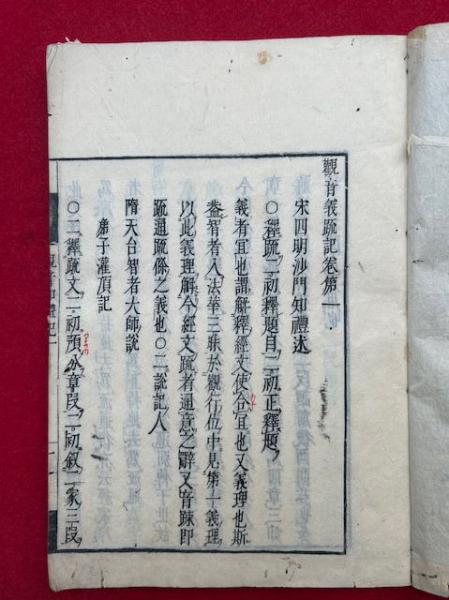 觀音義疏記卷第一
宋四明沙門知禮述
○釋疏二初釋題目二初正釋題
義者宜也謂解釋經文使合宜也又義理也斯
葢智者入法華三昧於觀行位中見第一義理
以此義理解今經文疏者通意之辭又音踈即
疏通疏條之義也○二說記人
隋天台智者大師說
弟子灌頂記
○二釋疏文二初預分章段二初敘二家三段